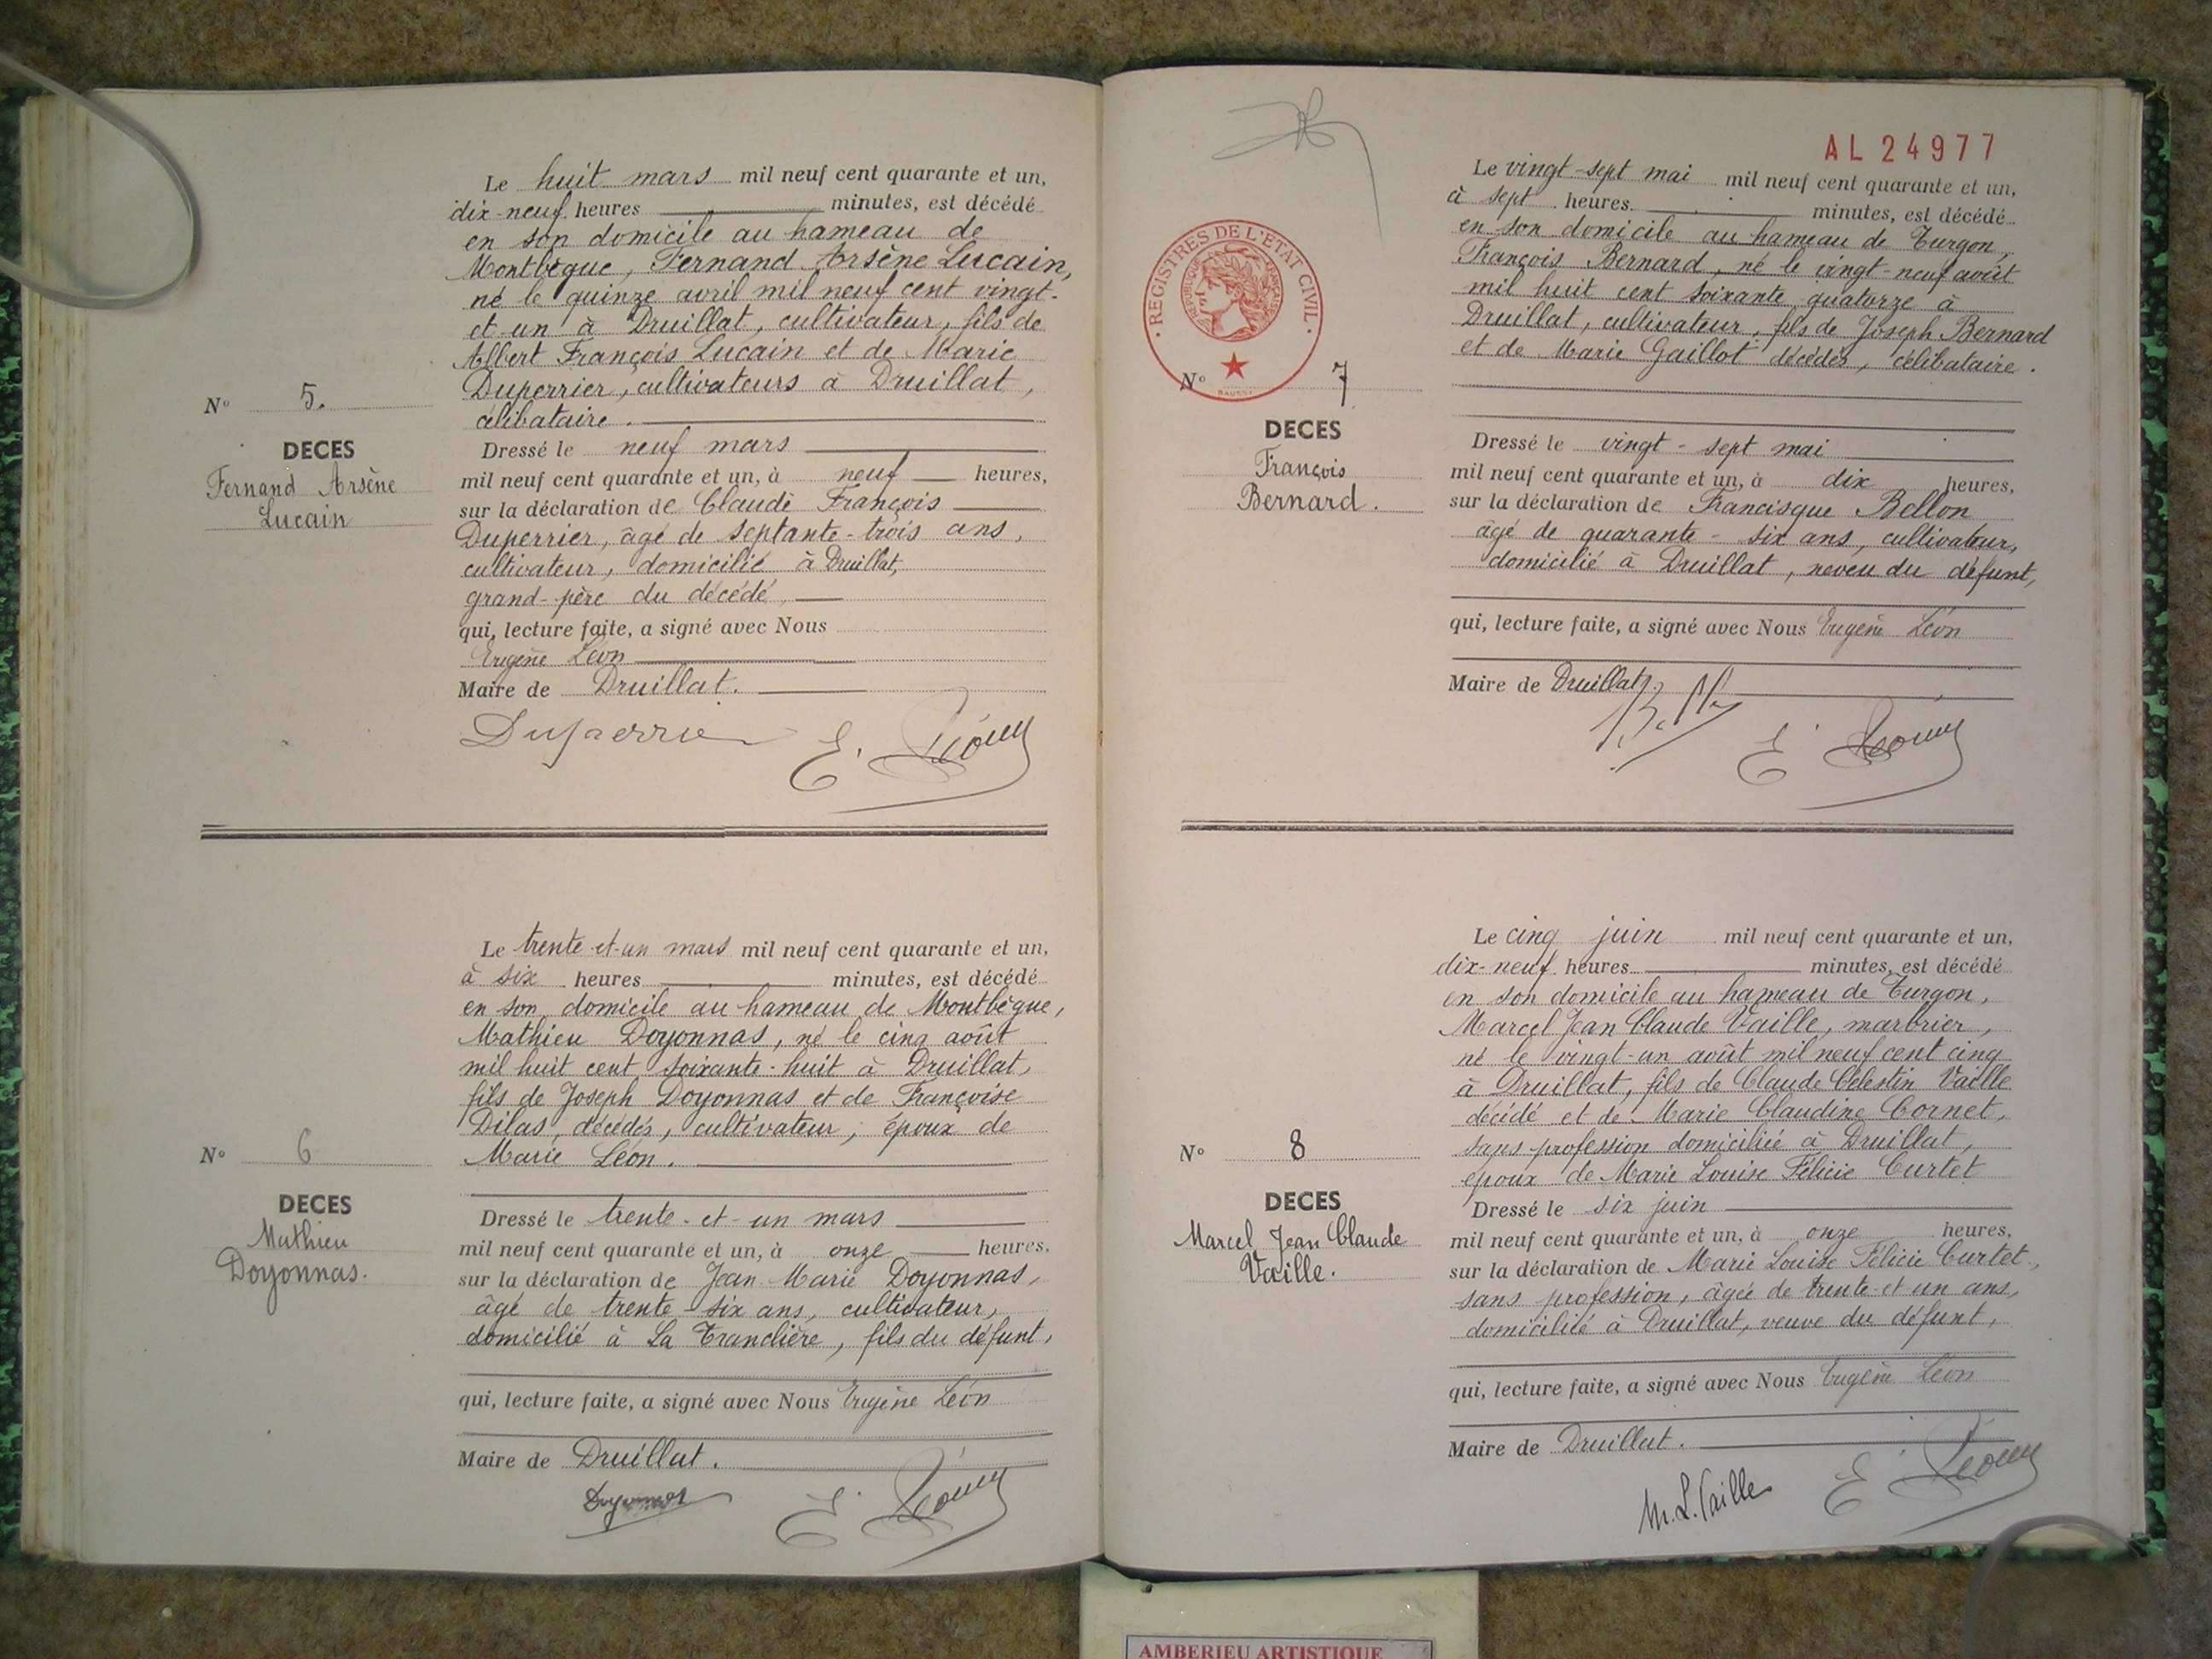 Le huit mars mil neuf cent quarante et un,
dix-neuf heures minutes, est décédé
en son domicile au hameau de
Montbègue, Fernand Arsène Lucain,
né le quinze avril mil neuf cent vingt-
et-un à Druillat, cultivateur, fils de
Albert François Lucain et de Marie
Duperrier, cultivateurs à Druillat,
célibataire.
N° 5.
DECES
Fernand Arsène
Lucain
Dressé le neuf mars
mil neuf cent quarante et un, à neuf heures,
sur la déclaration de Claude François
Duperrier, âgé de septante-trois ans,
cultivateur, domicilié à Druillat,
grand-père du décédé,
qui, lecture faite, a signé avec Nous
Eugène Léon
Maire de Druillat.
Duperrier E. Léon
Le trente-et-un mars mil neuf cent quarante et un,
à six heures minutes, est décédé
en son domicile au hameau de Montbègue,
Mathieu Doyonnas, né le cinq août
mil huit cent soixante-huit à Druillat,
fils de Joseph Doyonnas et de Françoise
Dilas, décédés, cultivateur, époux de
Marie Léon.
N° 6
DECES
Mathieu
Doyonnas.
Dressé le trente-et-un mars
mil neuf cent quarante et un, à onze heures,
sur la déclaration de Jean-Marie Doyonnas,
âgé de trente-six ans, cultivateur,
domicilié à La Tranclière, fils du défunt,
qui, lecture faite, a signé avec Nous Eugène Léon
Maire de Druillat.
Doyonnas E. Léon
AL24977
Le vingt-sept mai mil neuf cent quarante et un,
à sept heures minutes, est décédé
en son domicile au hameau de Turgon,
François Bernard, né le vingt-neuf août
mil huit cent soixante quatorze à
Druillat, cultivateur, fils de Joseph Bernard
et de Marie Gaillot décédés, célibataire.
REGISTRES DE L'ETAT CIVIL
REPUBLIQUE FRANÇAISE
N° 7
DECES
François
Bernard.
Dressé le vingt-sept mai
mil neuf cent quarante et un, à dix heures,
sur la déclaration de Francisque Bellon
âgé de quarante-six ans, cultivateur,
domicilié à Druillat, neveu du défunt,
qui, lecture faite, a signé avec Nous Eugène Léon
Maire de Druillat.
E. Léon
Le cinq juin mil neuf cent quarante et un,
dix-neuf heures minutes, est décédé
en son domicile au hameau de Turgon,
Marcel Jean Claude Vaille, marbrier,
né le vingt-un août mil neuf cent cinq
à Druillat, fils de Claude Célestin Vaille
décédé et de Marie Claudine Cornet,
sans profession domiciliée à Druillat,
époux de Marie Louise Félicie Curtet
N° 8
DECES
Marcel Jean Claude
Vaille.
Dressé le six juin
mil neuf cent quarante et un, à onze heures,
sur la déclaration de Marie Louise Félicie Curtet,
sans profession, âgée de trente-et un ans,
domicilié à Druillat, veuve du défunt,
qui, lecture faite, a signé avec Nous Eugène Léon
Maire de Druillat.
M. L. Vaille E. Léon
AMBERIEU ARTISTIQUE